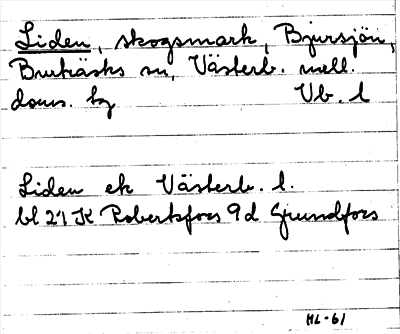 Liden, skogsmark, Bjursjön,
Burträsks sn, Västerb. mell.
doms. hg Vb. l
Liden ek Västerb. l.
bl 21 K Robertsfors 9 d Grundfors
HL-61